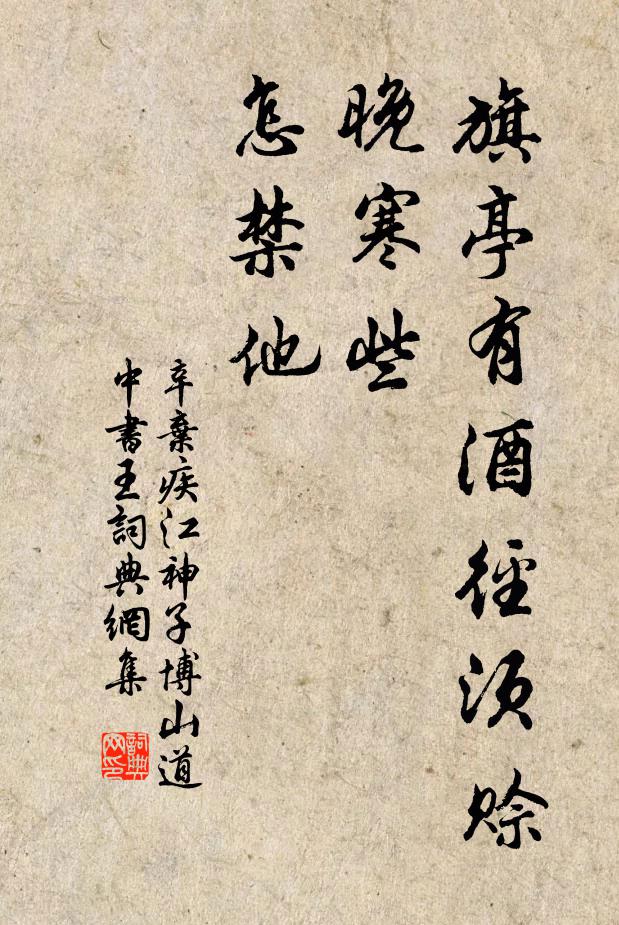 旗亭有酒徑須賒
晚寒些
怎禁他
辛棄疾江神子博山道
中書王詞典網集
詞典網印